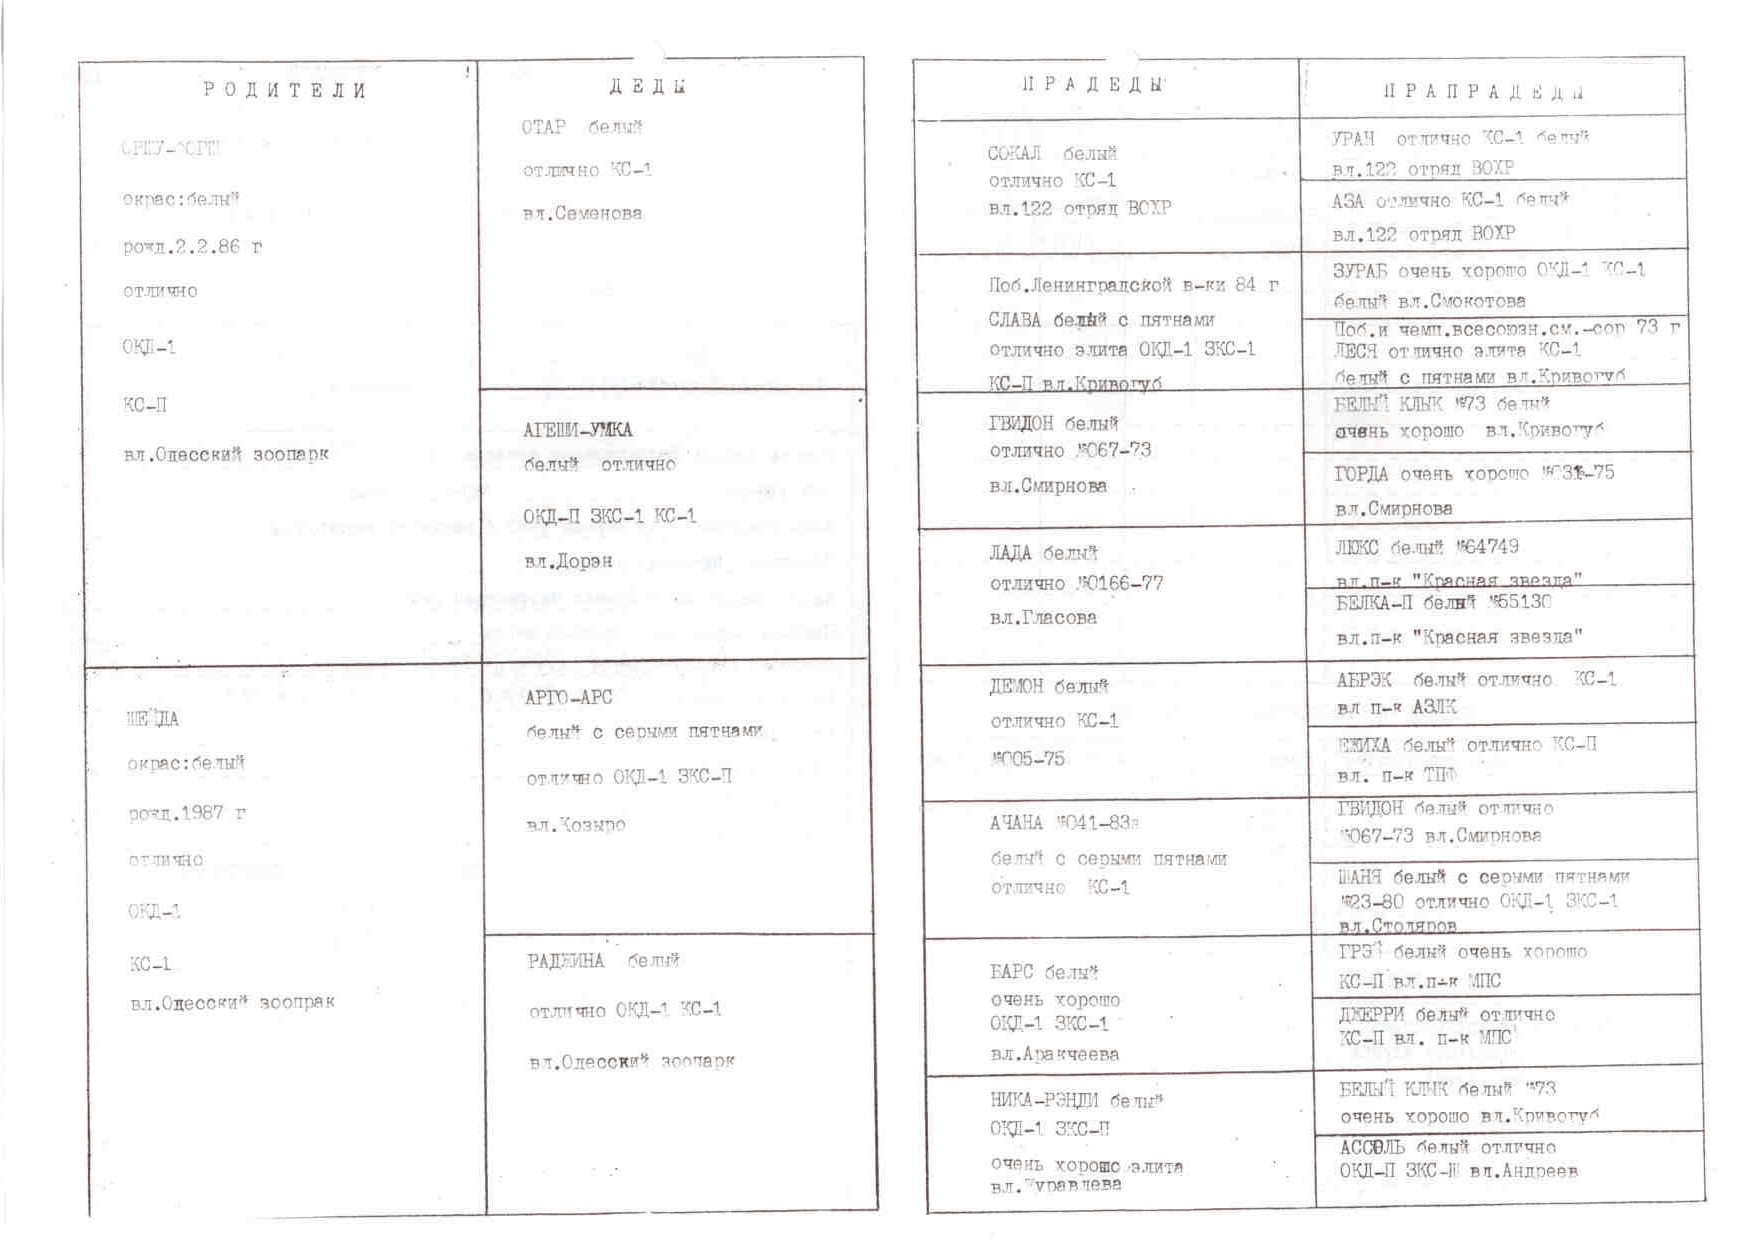 РОДИТЕЛИ
окрас:белый
рожд.2.2.86 г
отлично
ОКД-1
КС-П
вл.Одесский зоопарк
ШЕЙДА
окрас:белый
рожд.1987 г
отлично
ОКД-1
КС-1
вл.Одесский зоопрак
ДЕДЫ
ОТАР белый
отлично КС-1
вл.Семенова
АГЕШИ-УМКА
белый отлично
ОКД-П ЗКС-1 КС-1
вл.Дорэн
АРГО-АРС
белый с серыми пятнами
отлично ОКД-1 ЗКС-П
вл.Козыро
РАДЖИНА белый
отлично ОКД-1 КС-1
вл.Одесский зоопарк
ПРАДЕДЫ
СОКАЛ белый
отлично КС-1
вл.122 отряд ВОХР
Поб.Ленинградской в-ки 84 г
СЛАВА белый с пятнами
отлично элита ОКД-1 ЗКС-1
КС-П вл.Кривогуб
ГВИДОН белый
отлично №067-73
вл.Смирнова
ЛАДА белый
отлично №0166-77
вл.Гласова
ДЕМОН белый
отлично КС-1
№005-75
АЧАНА №041-83
белый с серыми пятнами
отлично КС-1
БАРС белый
очень хорошо
ОКД-1 ЗКС-1
вл.Аракчеева
НИКА-РЭНДИ белый
ОКД-1 ЗКС-П
очень хорошо элита
вл.Журавлева
ПРАПРАДЕДЫ
УРАН отлично КС-1 белый
вл.122 отряд ВОХР
АЗА отлично КС-1 белый
вл.122 отряд ВОХР
ЗУРАБ очень хорошо ОКД-1 КС-1
белый вл.Смокотова
Поб.и чемп.всесоюзн.см.-сор 73 г
ЛЕСЯ отлично элита КС-1
белый с пятнами вл.Кривогуб
БЕЛЫЙ КЛЫК №73 белый
очень хорошо вл.Кривогуб
ГОРДА очень хорошо
вл.Смирнова
ЛЮКС белый №64749
вл.п-к "Красная звезда"
БЕЛКА-П белый №55130
вл.п-к "Красная звезда"
АБРЭК белый отлично КС-1
вл п-к АЗЛК
ЕЖИХА белый отлично КС-П
вл. п-к
ГВИДОН белый отлично
№067-73 вл.Смирнова
ШАНЯ белый с серыми пятнами
№23-80 отлично ОКД-1 ЗКС-1
вл.Столяров
ГРЭЙ белый очень хорошо
КС-П вл.п-к МПС
ДЖЕРРИ белый отлично
КС-П вл. п-к МПС
БЕЛЫЙ КЛЫК белый №73
очень хорошо вл.Кривогуб
АССОЛЬ белый отлично
ОКД-П ЗКС-Ш вл.Андреев